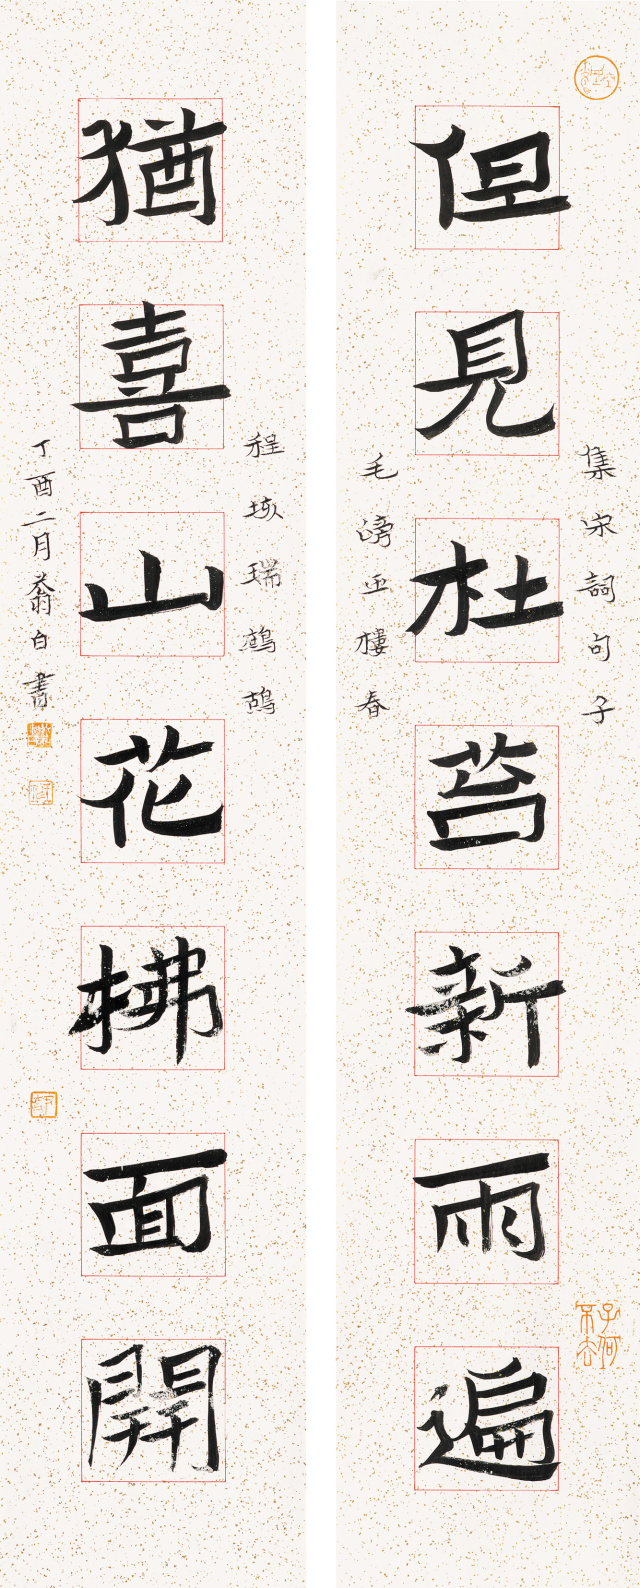 集宋詞句子
但見杜若新雨遍
毛滂玉樓春
程垓瑞鷓鴣
猶喜山花拂面開
丁酉二月翁白書